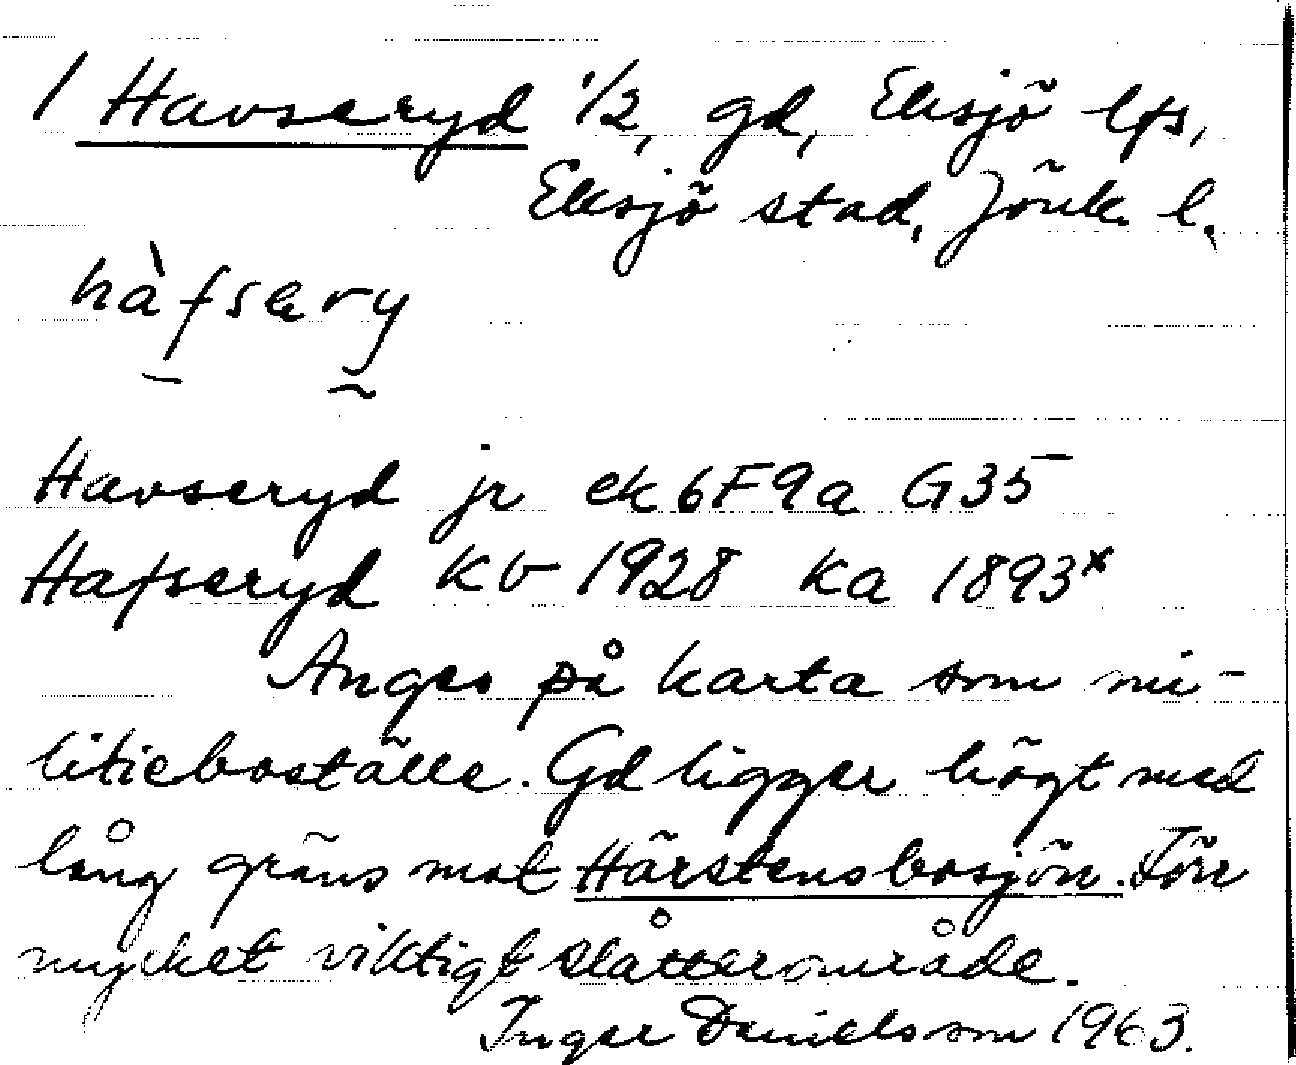 1 Havseryd 1/2, gd, Eksjö lfs,
Eksjö stad, Jönk. l.
hàfsery
Havseryd jr ek 6F9a G35
Hafseryd KB 1928 Ka 1893x
Anges på karta som mi-
litieboställe. Gd ligger högt med
lång gräns mot Härstensbosjön. Förr
mycket viktigt slåtterområde.
Inger Danielsson 1963.